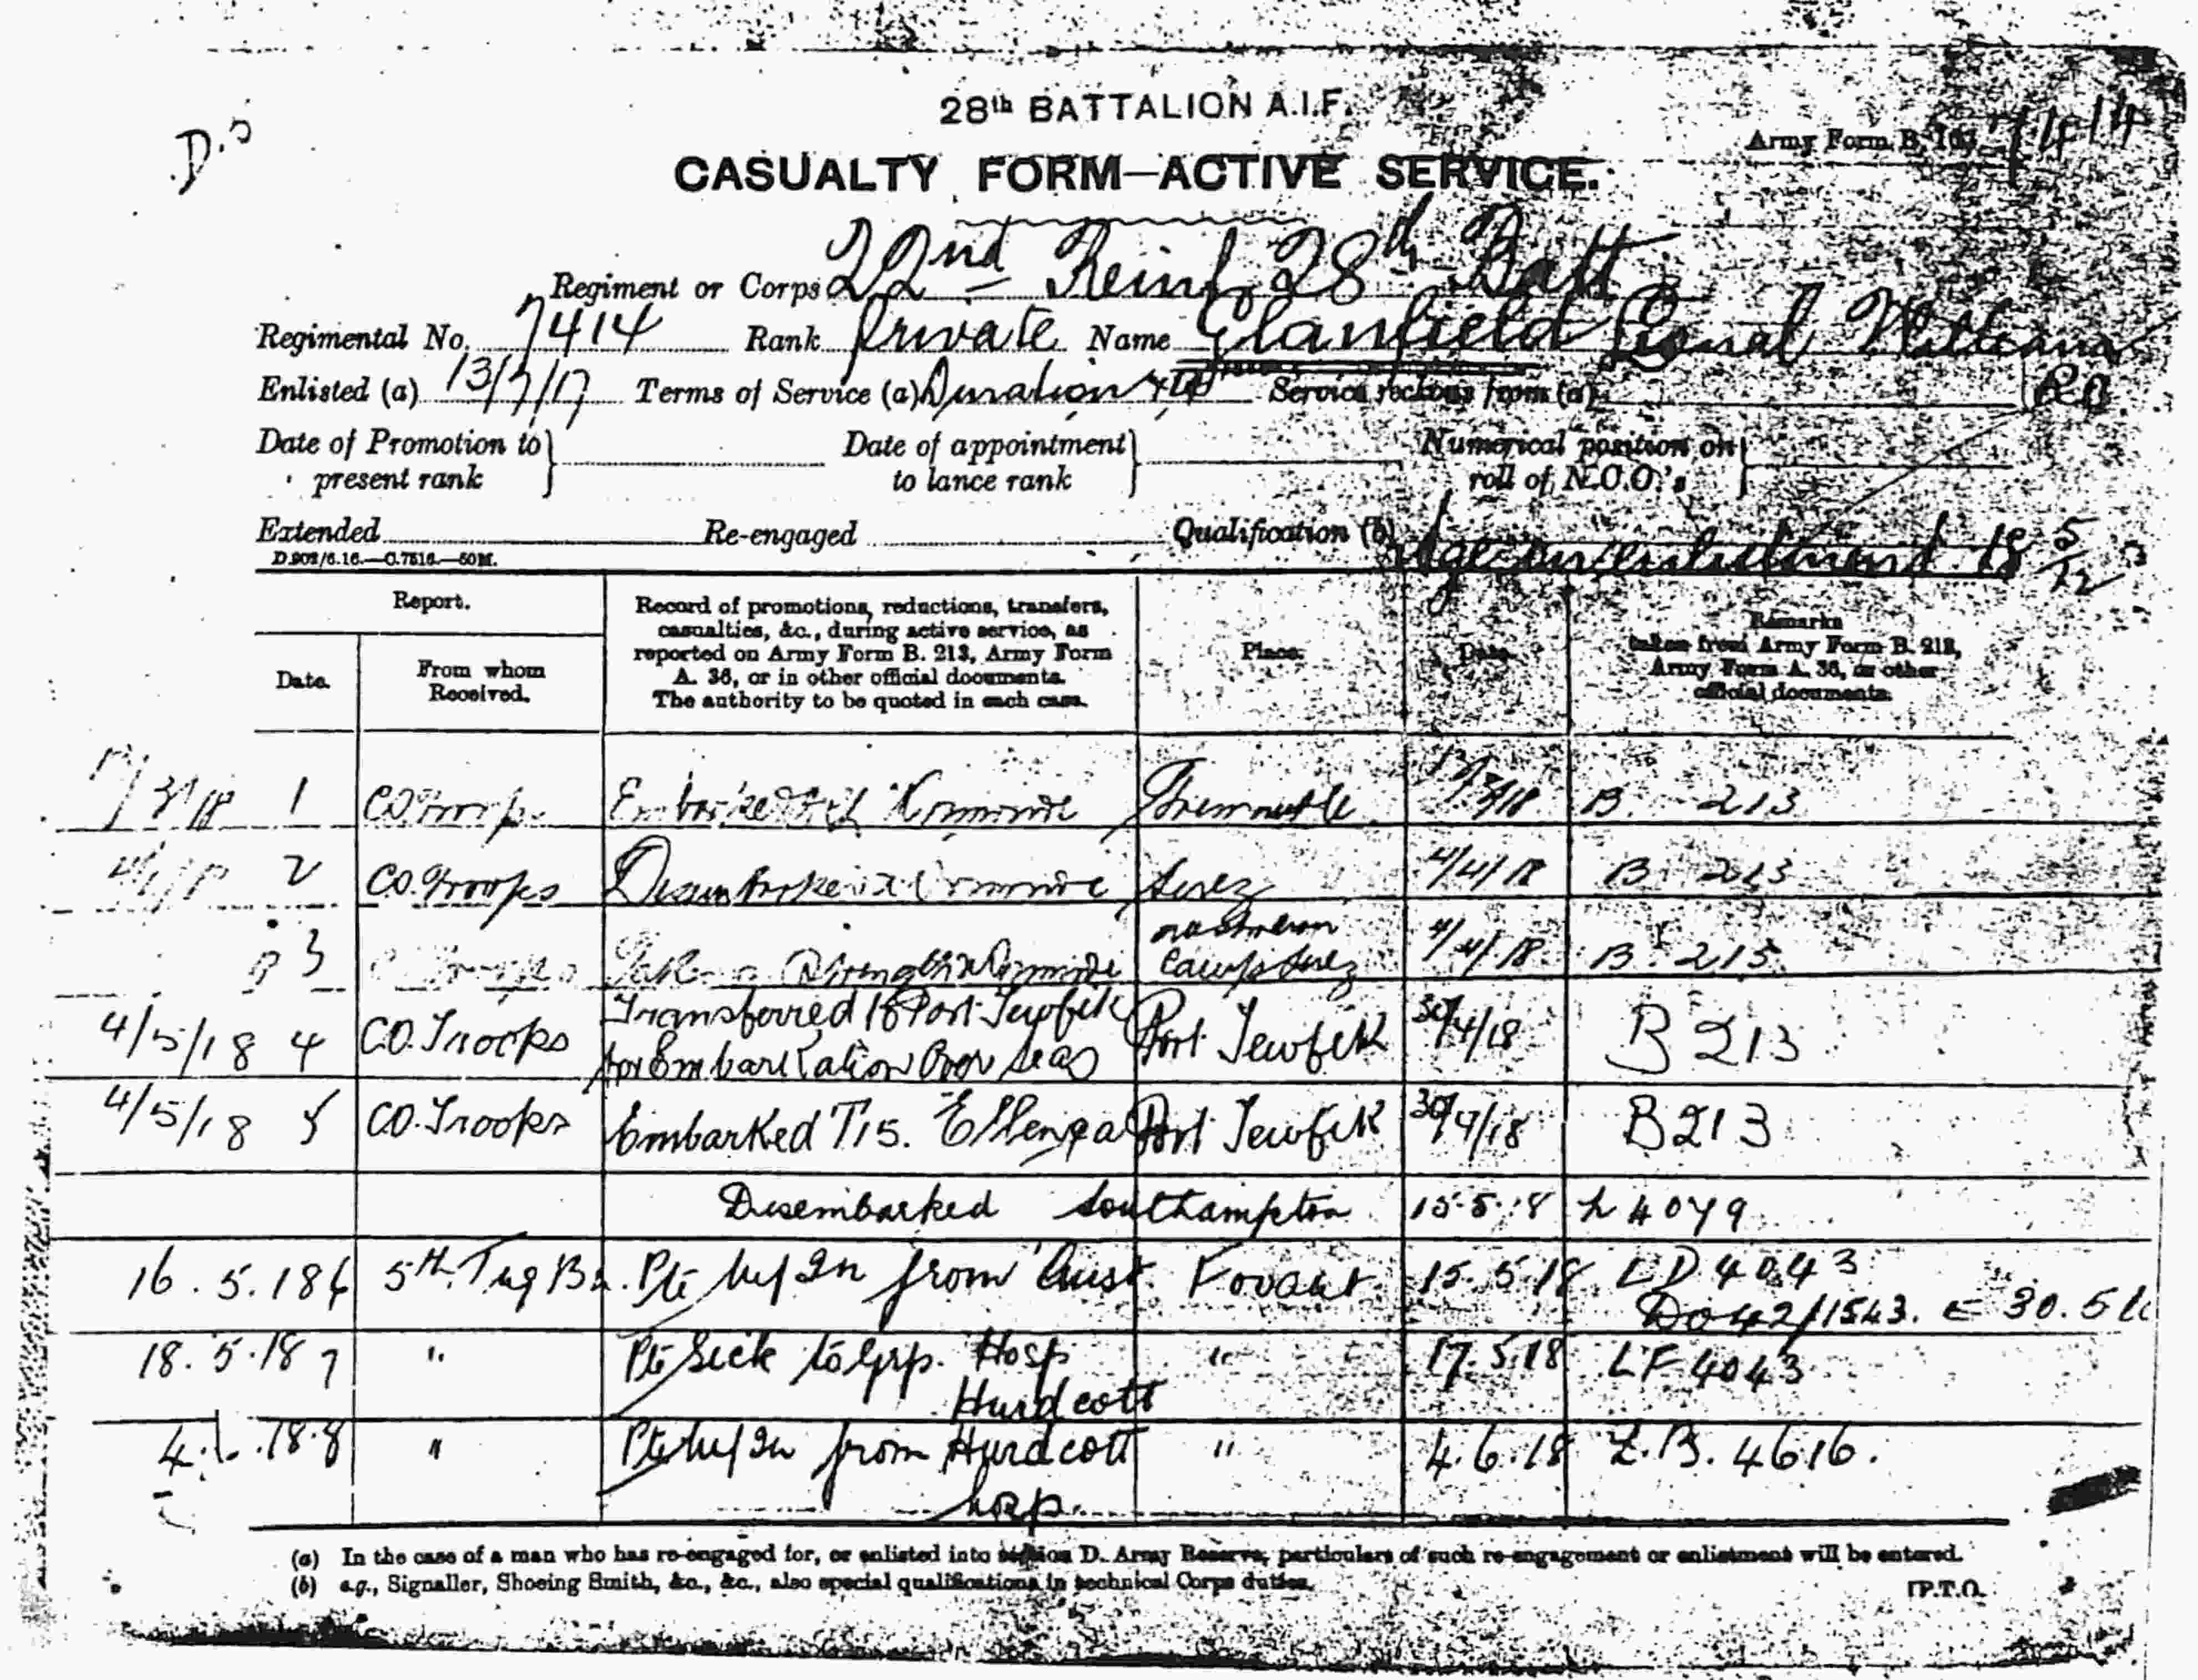 28th BATTALION A.I.F.
D.
Army Form B. 103. 7414
CASUALTY FORM—ACTIVE SERVICE.
Regiment or Corps 22nd Reinf 28th Batt
Regimental No. 7414 Rank Private Name Glanfield William
Enlisted (a) 13/7/17 Terms of Service (a) Duration Service reckons from (a)
Date of Promotion to present rank } Date of appointment to lance rank } Numerical position on roll of N.C.O.'s }
Extended Re-engaged Qualification (b) Age on enlistment 18 5/12
D.902/6.16.—C.7516.—50M.
Report.
Date.
From whom Received.
Record of promotions, reductions, transfers,
casualties, &c., during active service, as
reported on Army Form B. 213, Army Form
A. 36, or in other official documents.
The authority to be quoted in each case.
Place.
Date.
Remarks
taken from Army Form B. 213,
Army Form A. 36, or other
official documents.
1 CO Troops Embarked Ormonde Fremantle B. 213
2 CO. Troops Disembarked Ormonde Suez 4/4/18 B 213
3 Strength Ormonde Australian Camp Suez 4/4/18 B 213
4/5/18 4 CO. Troops Transferred to Port Tewfik for Embarkation Over Seas Port Tewfik 30/4/18 B 213
4/5/18 5 CO. Troops Embarked T15. Ellenga Port Tewfik 30/4/18 B 213
Disembarked Southampton 15.5.18 L 4079
16.5.18 6 5th Tng Bn. Pte M/In from Aust. Fovant 15.5.18 LD 4043
Do 42/1543. 30.5
18.5.18 7 " Pte Sick to Grp. Hosp Hurdcott " 17.5.18 LF 4043
4.6.18 8 " Pte M/In from Hurdcott hosp. " 4.6.18 L.B. 4616.
(a) In the case of a man who has re-engaged for, or enlisted into section D. Army Reserve, particulars of such re-engagement or enlistment will be entered.
(b) e.g., Signaller, Shoeing Smith, &c., &c., also special qualifications in technical Corps duties.
[P.T.O.